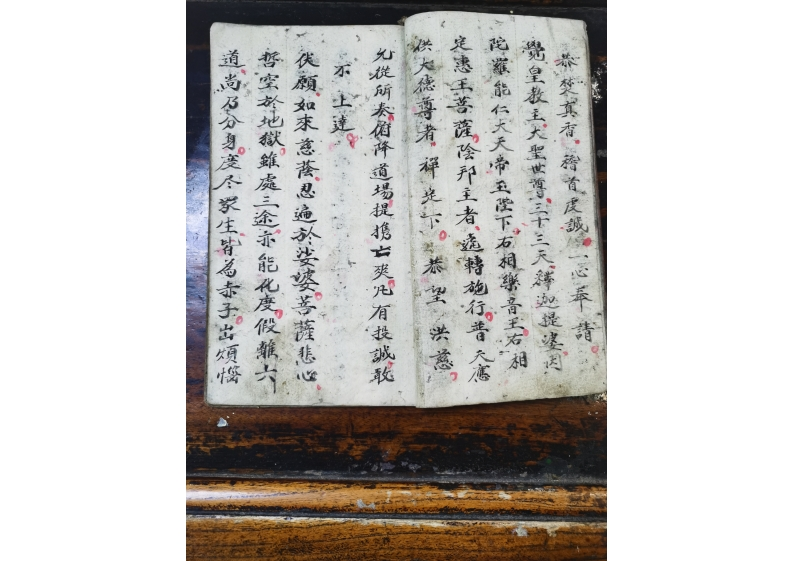 恭焚真香稽首虔誠一心奉請
覺皇教主大聖世尊三十三天釋迦提婆因
陀羅能仁大天帝王陛下右相樂音王右相
定惠王菩薩陰邦主者遞轉施行普天應
供大德尊者禪定下恭望洪慈
允從所奏俯降道場提携亡爽凡有投誠敢
不上達
伏願如來慈蔭忍遍於娑婆菩薩悲心
哲空於地獄雖處三途亦能化度假離六
道尚乃分身度尽眾生皆為赤子出煩惱